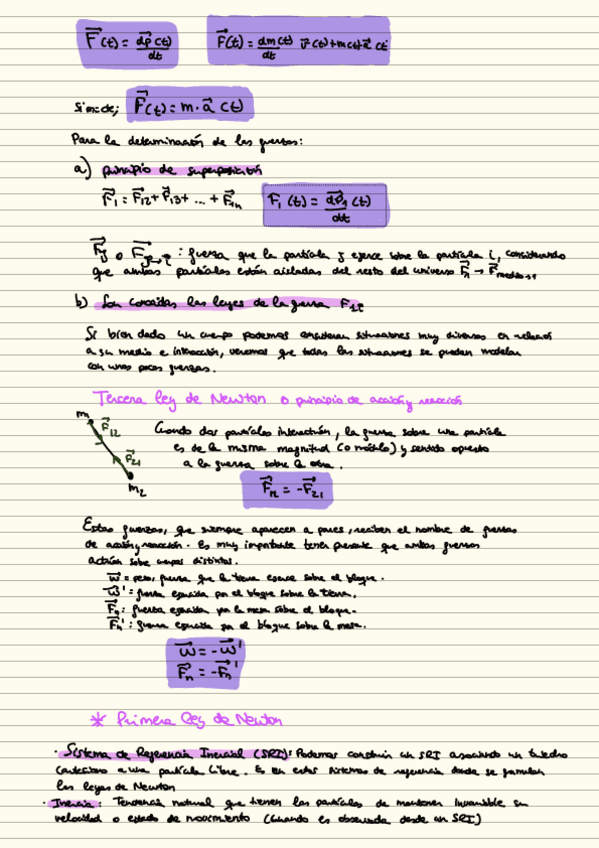 F(t) = dp(t)/dt    F(t) = dm(t)/dt v(t) + m(t) a(t)
Si m=cte; F(t) = m · a (t)
Para la determinación de las fuerzas:
a) principio de superposición
F1 = F12 + F13 + ... + F1n    F1 (t) = dp1/dt (t)
Fij o Fj→i : fuerza que la partícula j ejerce sobre la partícula i, considerando
que ambas partículas están aisladas del resto del universo
b) Son conocidas las leyes de la fuerza
Si bien dado un cuerpo podemos considerar situaciones muy diversas en relación
a su medio e interacción, veremos que todas las situaciones se pueden modelar
con unas pocas fuerzas.
Tercera ley de Newton o principio de acción y reacción
m1
F12
F21
m2
Cuando dos partículas interactúan, la fuerza sobre una partícula
es de la misma magnitud (o módulo) y sentido opuesto
a la fuerza sobre la otra.
F12 = -F21
Estas fuerzas, que siempre aparecen a pares, reciben el nombre de fuerzas
de acción y reacción. Es muy importante tener presente que ambas fuerzas
actúan sobre cuerpos distintos.
w = peso, fuerza que la tierra ejerce sobre el bloque.
w' = fuerza ejercida por el bloque sobre la tierra.
Fn: fuerza ejercida por la mesa sobre el bloque.
Fn': fuerza ejercida por el bloque sobre la mesa.
w = -w'
Fn = -Fn'
* Primera ley de Newton
· Sistema de Referencia Inercial (SRI): Podemos construir un SRI asociando un triedro
cartesiano a una partícula libre. Es en estos sistemas de referencia donde se formulan
las leyes de Newton
· Inercia: Tendencia natural que tienen las partículas de mantener invariable su
velocidad o estado de movimiento (cuando es observada desde un SRI)